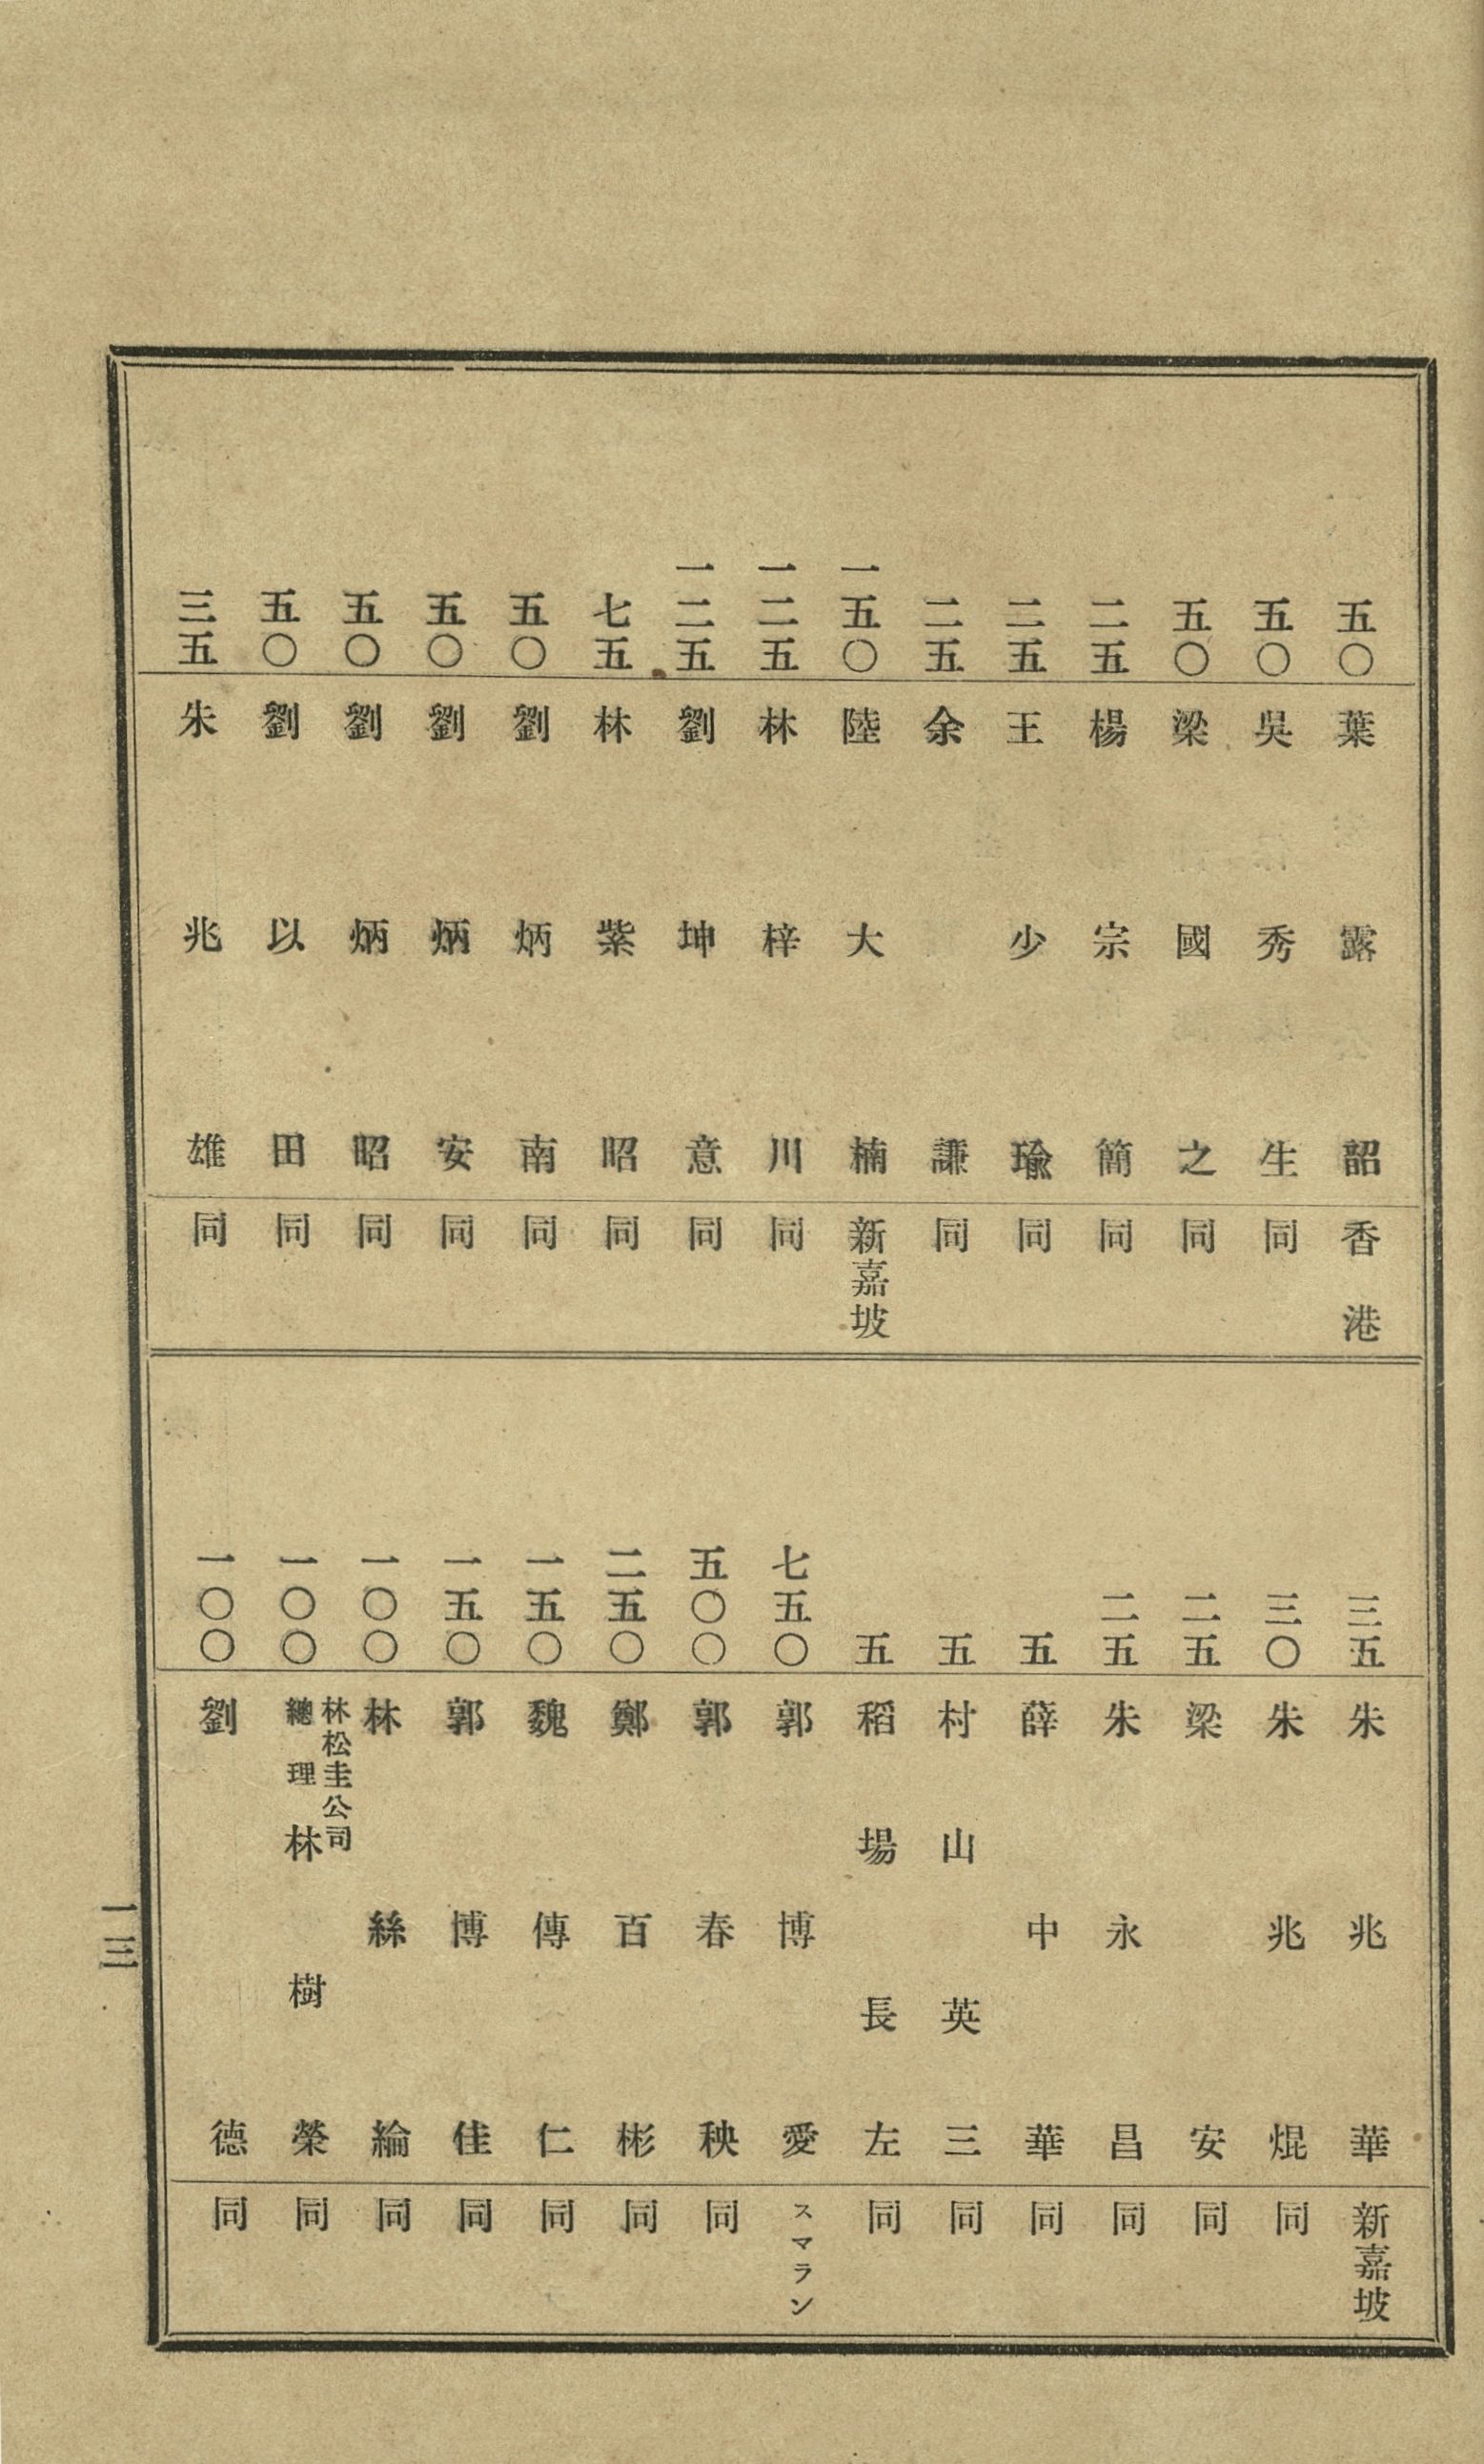 五〇 葉露韶 香港
五〇 吳秀生 同
五〇 梁國之 同
二五 楊宗簡 同
二五 王少瑜 同
二五 余謙 同
一五〇 陸大楠 新嘉坡
一二五 林梓川 同
一二五 劉坤意 同
七五 林紫昭 同
五〇 劉炳南 同
五〇 劉炳安 同
五〇 劉炳昭 同
五〇 劉以田 同
三五 朱兆雄 同
三五 朱兆華 新嘉坡
三〇 朱兆焜 同
二五 梁安 同
二五 朱永昌 同
五 薛中華 同
五 村山英三 同
五 稻場長左 同
七五〇 郭博愛 スマラン
五〇〇 郭春秧 同
二五〇 鄭百彬 同
一五〇 魏傳仁 同
一五〇 郭博佳 同
一〇〇 林絲綸 同
一〇〇 林松圭公司總理 林樹榮 同
一〇〇 劉德 同
一三